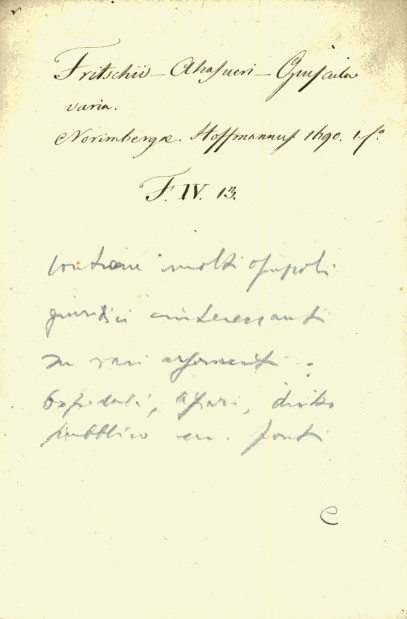 Fritschii - Ahasueri - Opuscula
varia.
Norimbergæ. Hoffmannus 1690. 1 fº
F. IV. 13.
contiene molti opuscoli
giuridici interessanti
su vari argomenti:
Ospedali, diritto
pubblico fonti
C